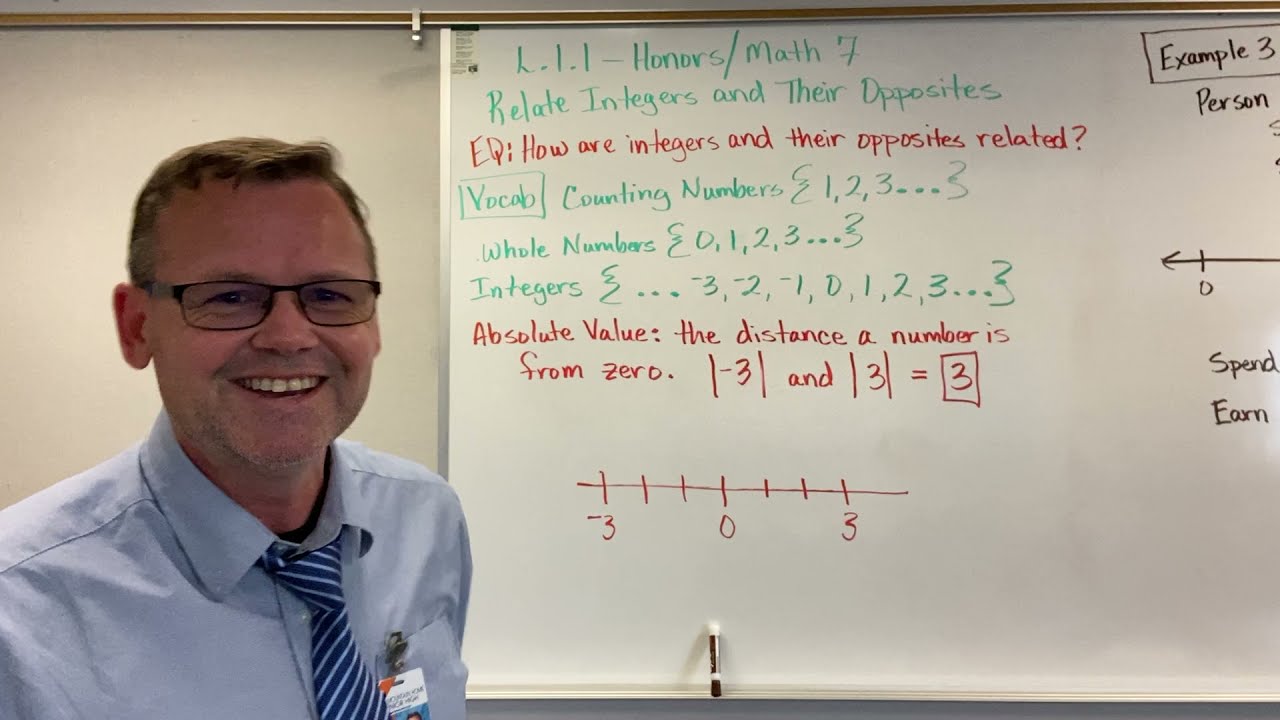 L.1.1 – Honors/Math 7
Relate Integers and Their Opposites
EQ: How are integers and their opposites related?
Vocab Counting Numbers { 1, 2, 3 ... }
Whole Numbers { 0, 1, 2, 3 ... }
Integers { ... -3, -2, -1, 0, 1, 2, 3 ... }
Absolute Value: the distance a number is
from zero. |-3| and |3| = 3
-3 0 3
Example 3
Person
0
Spend
Earn